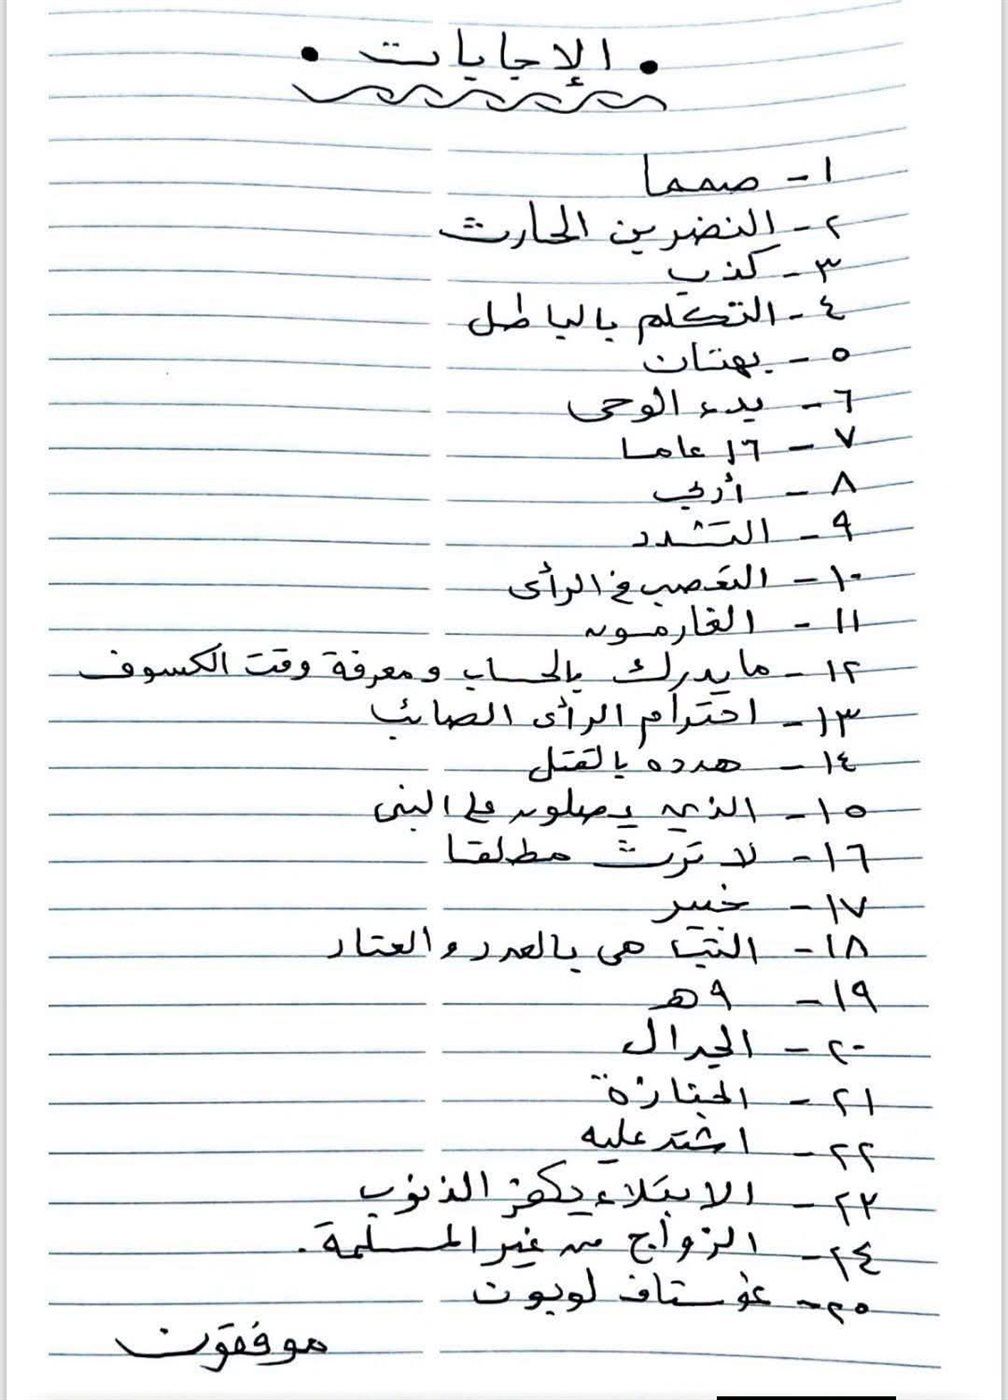 • الإجابات •
١- صمما
٢- النضر بن الحارث
٣- كذب
٤- التكلم بالباطل
٥- بهتان
٦- بدء الوحى
٧- ١٦ عاما
٨- أربي
٩- التشدد
١٠- التعصب في الرأى
١١- الغارمون
١٢- ما يدرك بالحساب ومعرفة وقت الكسوف
١٣- احترام الرأى الصائب
١٤- هدده بالقتل
١٥- الذين يصلون على النبى
١٦- لا ترث مطلقا
١٧- خيبر
١٨- هى بالعدد والعتاد
١٩- ٩ هـ
٢٠- الجدال
٢١- الجنازة
٢٢- اشتد عليه
٢٣- الابتلاء يكفر الذنوب
٢٤- الزواج من غير المسلمة.
٢٥- غوستاف لوبون
موفقون